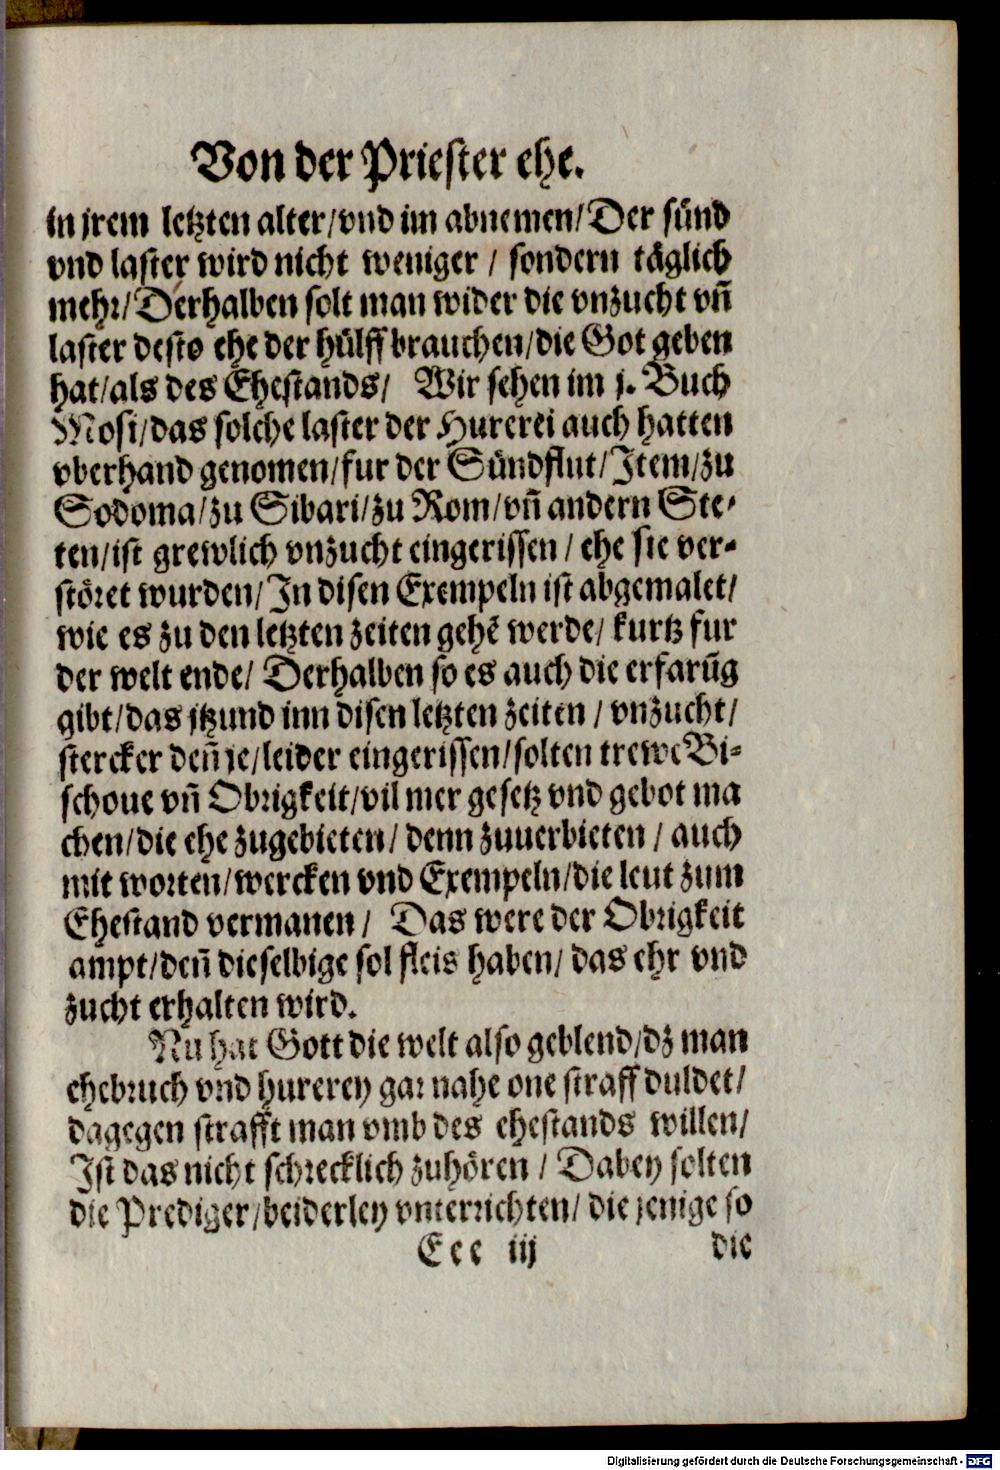 Von der Priester ehe.
in jrem letzten alter/vnd im abnemen/Der sünd
vnd laster wird nicht weniger / sondern täglich
mehr/Derhalben solt man wider die vnzucht vñ
laster desto ehe der hülff brauchen/die Got geben
hat/als des Ehestands/ Wir sehen im j. Buch
Mosi/das solche laster der Hurerei auch hatten
vberhand genomen/fur der Sündflut/Item/zu
Sodoma/zu Sibari/zu Rom/vñ andern Ste-
ten/ist grewlich vnzucht eingerissen / ehe sie ver-
störet wurden/In disen Exempeln ist abgemalet/
wie es zu den letzten zeiten gehẽ werde/ kurtz fur
der welt ende/ Derhalben so es auch die erfarũg
gibt/das jtzund inn disen letzten zeiten / vnzucht/
stercker deñ je/leider eingerissen/solten trewe Bi-
schoue vñ Obrigkeit/vil mer gesetz vnd gebot ma
chen/die ehe zugebieten/ denn zuuerbieten / auch
mit worten/wercken vnd Exempeln/die leut zum
Ehestand vermanen/ Das were der Obrigkeit
ampt/deñ dieselbige sol fleis haben/ das ehr vnd
zucht erhalten wird.
Nu hat Gott die welt also geblend/dz man
ehebruch vnd hurerey gar nahe one straff duldet/
dagegen strafft man vmb des ehestands willen/
Ist das nicht schrecklich zuhören / Dabey solten
die Prediger/beiderley vnterrichten/ die jenige so
Eee iij die
Digitalisierung gefördert durch die Deutsche Forschungsgemeinschaft - DFG